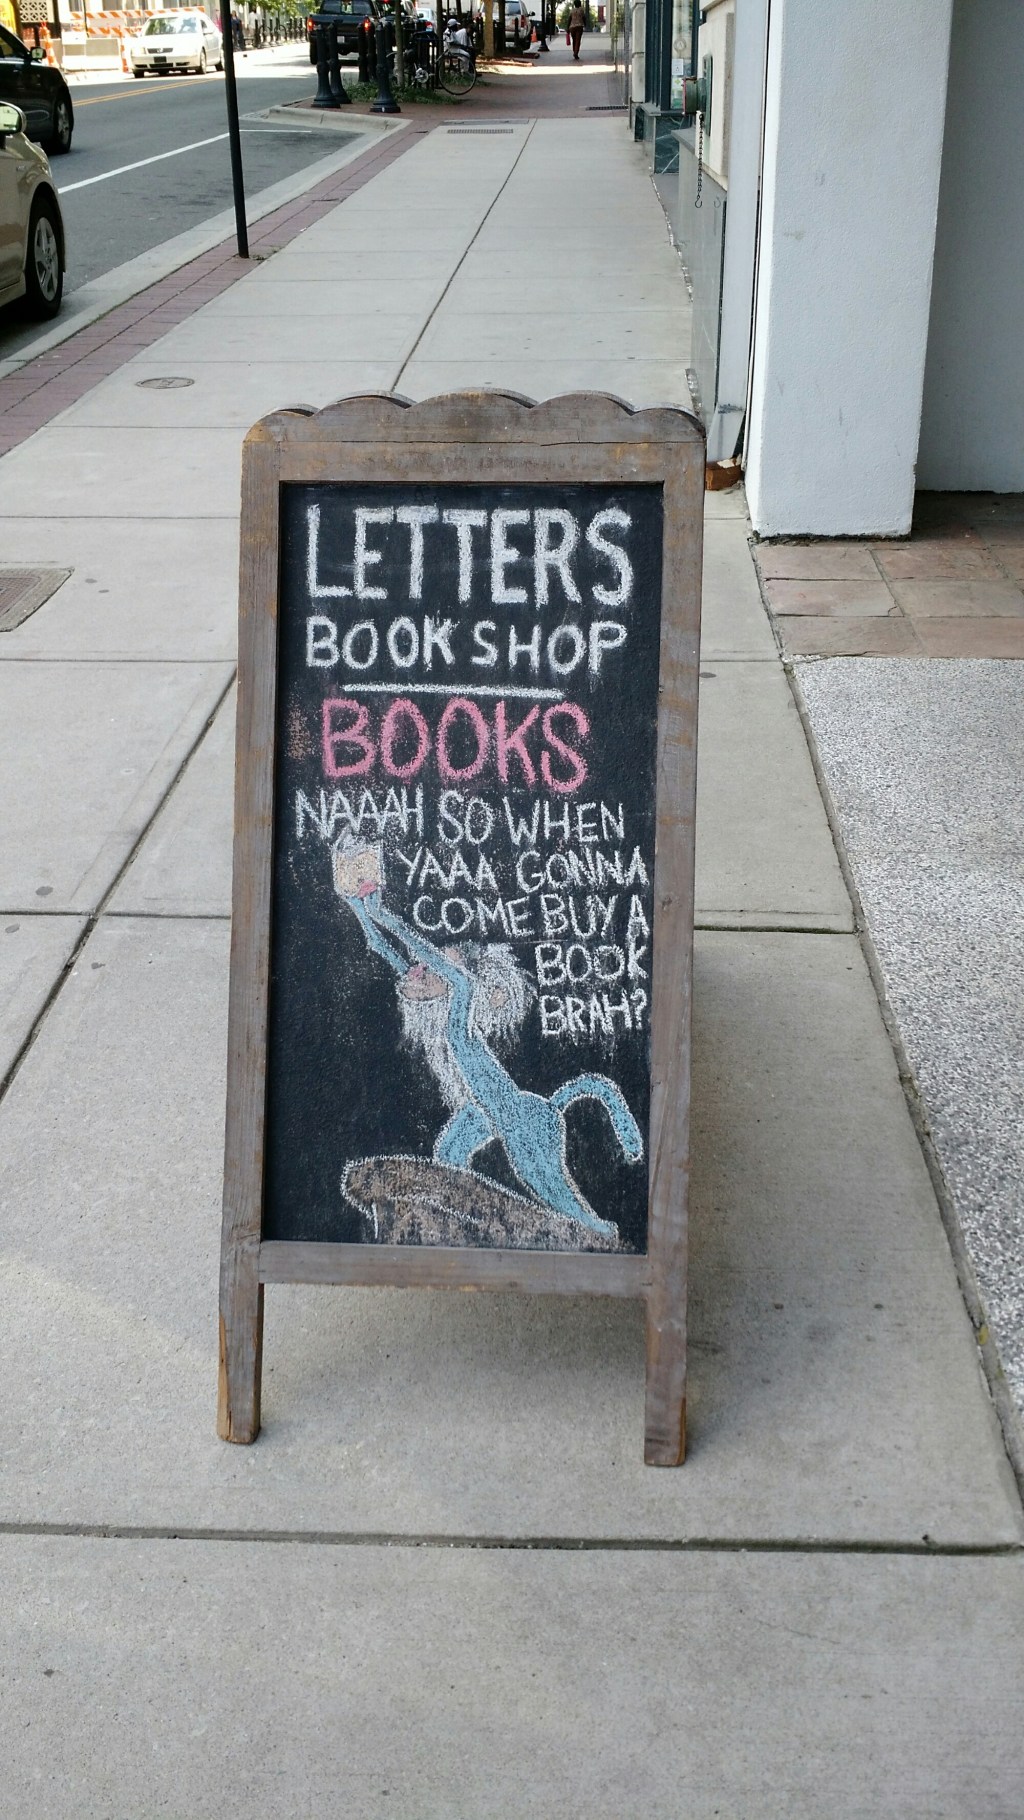 LETTERS
BOOKSHOP
BOOKS
NAAAH SO WHEN
YAAA GONNA
COME BUY A
BOOK
BRAH?